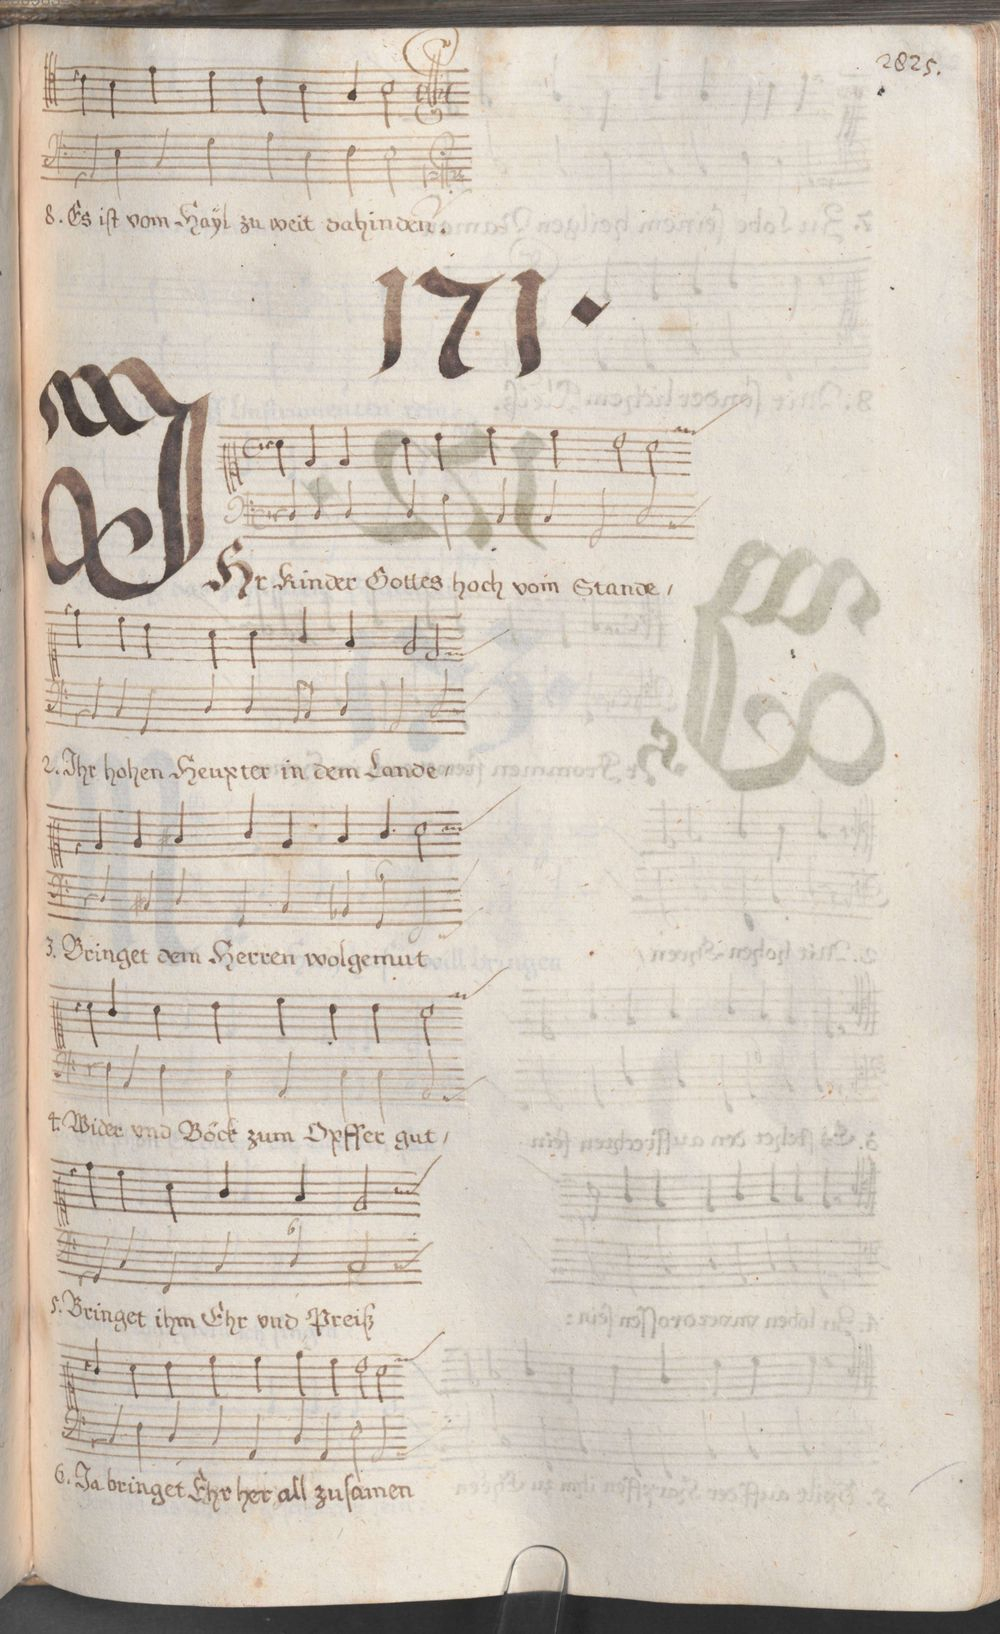 2825.
8. Es ist vom Hayl zu weit dahinden.
171.
IHr Kinder Gottes hoch vom Stande /
2. Ihr hohen Heupter in dem Lande /
3. Bringet dem Herren wolgemut
4. Wider vnd Böck zum Opffer gut /
5. Bringet ihm Ehr vnd Preiß
6. Ja bringet Ehr her all zusamen